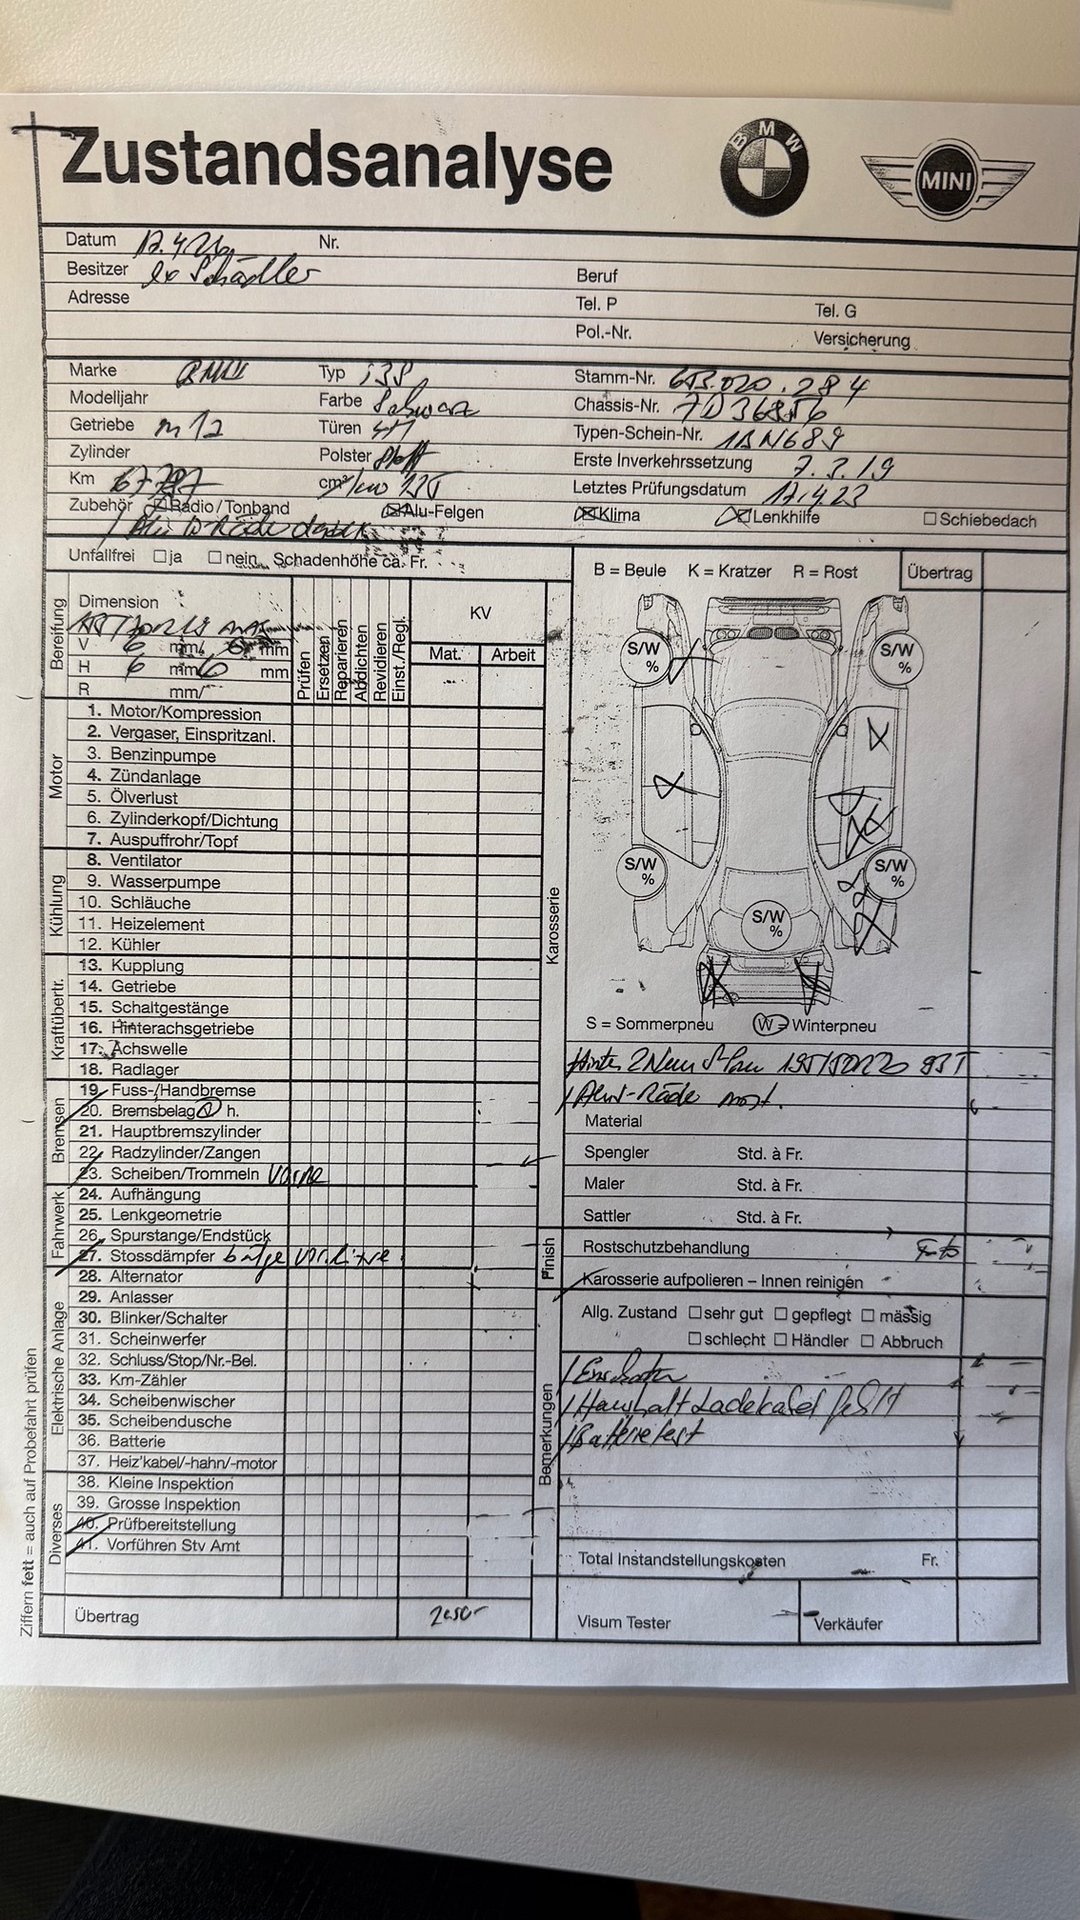 Zustandsanalyse
BMW
MINI
Datum 17.4.26 Nr.
Besitzer ex Schädler Beruf
Adresse Tel. P Tel. G
Pol.-Nr. Versicherung
Marke BMW Typ i3S Stamm-Nr. 653.020.284
Modelljahr Farbe Schwarz Chassis-Nr. 7D36856
Getriebe Türen Typen-Schein-Nr. 1BN689
Zylinder Polster Stoff Erste Inverkehrssetzung 7.3.19
Km cm³/kw 135 Letztes Prüfungsdatum 17.4.23
Zubehör Radio/Tonband Alu-Felgen Klima Lenkhilfe Schiebedach
Unfallfrei ja nein Schadenhöhe ca. Fr.
B = Beule K = Kratzer R = Rost Übertrag
Bereifung
Dimension
V 6 mm/ 6 mm
H 6 mm 6 mm
R mm/
Prüfen
Ersetzen
Reparieren
Abdichten
Revidieren
Einst./Regl.
KV
Mat. Arbeit
Motor
1. Motor/Kompression
2. Vergaser, Einspritzanl.
3. Benzinpumpe
4. Zündanlage
5. Ölverlust
6. Zylinderkopf/Dichtung
7. Auspuffrohr/Topf
Kühlung
8. Ventilator
9. Wasserpumpe
10. Schläuche
11. Heizelement
12. Kühler
Kraftübertr.
13. Kupplung
14. Getriebe
15. Schaltgestänge
16. Hinterachsgetriebe
17. Achswelle
18. Radlager
Bremsen
19. Fuss-/Handbremse
20. Bremsbelag v h.
21. Hauptbremszylinder
22. Radzylinder/Zangen
23. Scheiben/Trommeln vorne
Fahrwerk
24. Aufhängung
25. Lenkgeometrie
26. Spurstange/Endstück
27. Stossdämpfer
Elektrische Anlage
28. Alternator
29. Anlasser
30. Blinker/Schalter
31. Scheinwerfer
32. Schluss/Stop/Nr.-Bel.
33. Km-Zähler
34. Scheibenwischer
35. Scheibendusche
36. Batterie
37. Heiz'kabel/-hahn/-motor
Diverses
38. Kleine Inspektion
39. Grosse Inspektion
40. Prüfbereitstellung
41. Vorführen Stv Amt
Übertrag
Ziffern fett = auch auf Probefahrt prüfen
Karosserie
S/W %
S/W %
S/W %
S/W %
S/W %
S = Sommerpneu W = Winterpneu
Hinten 2 Neu
Material
Spengler Std. à Fr.
Maler Std. à Fr.
Sattler Std. à Fr.
Finish
Rostschutzbehandlung
Karosserie aufpolieren – Innen reinigen
Allg. Zustand sehr gut gepflegt mässig
schlecht Händler Abbruch
Bemerkungen
Haushalt Ladekabel fehlt
Batterietest
Total Instandstellungskosten Fr.
Visum Tester Verkäufer